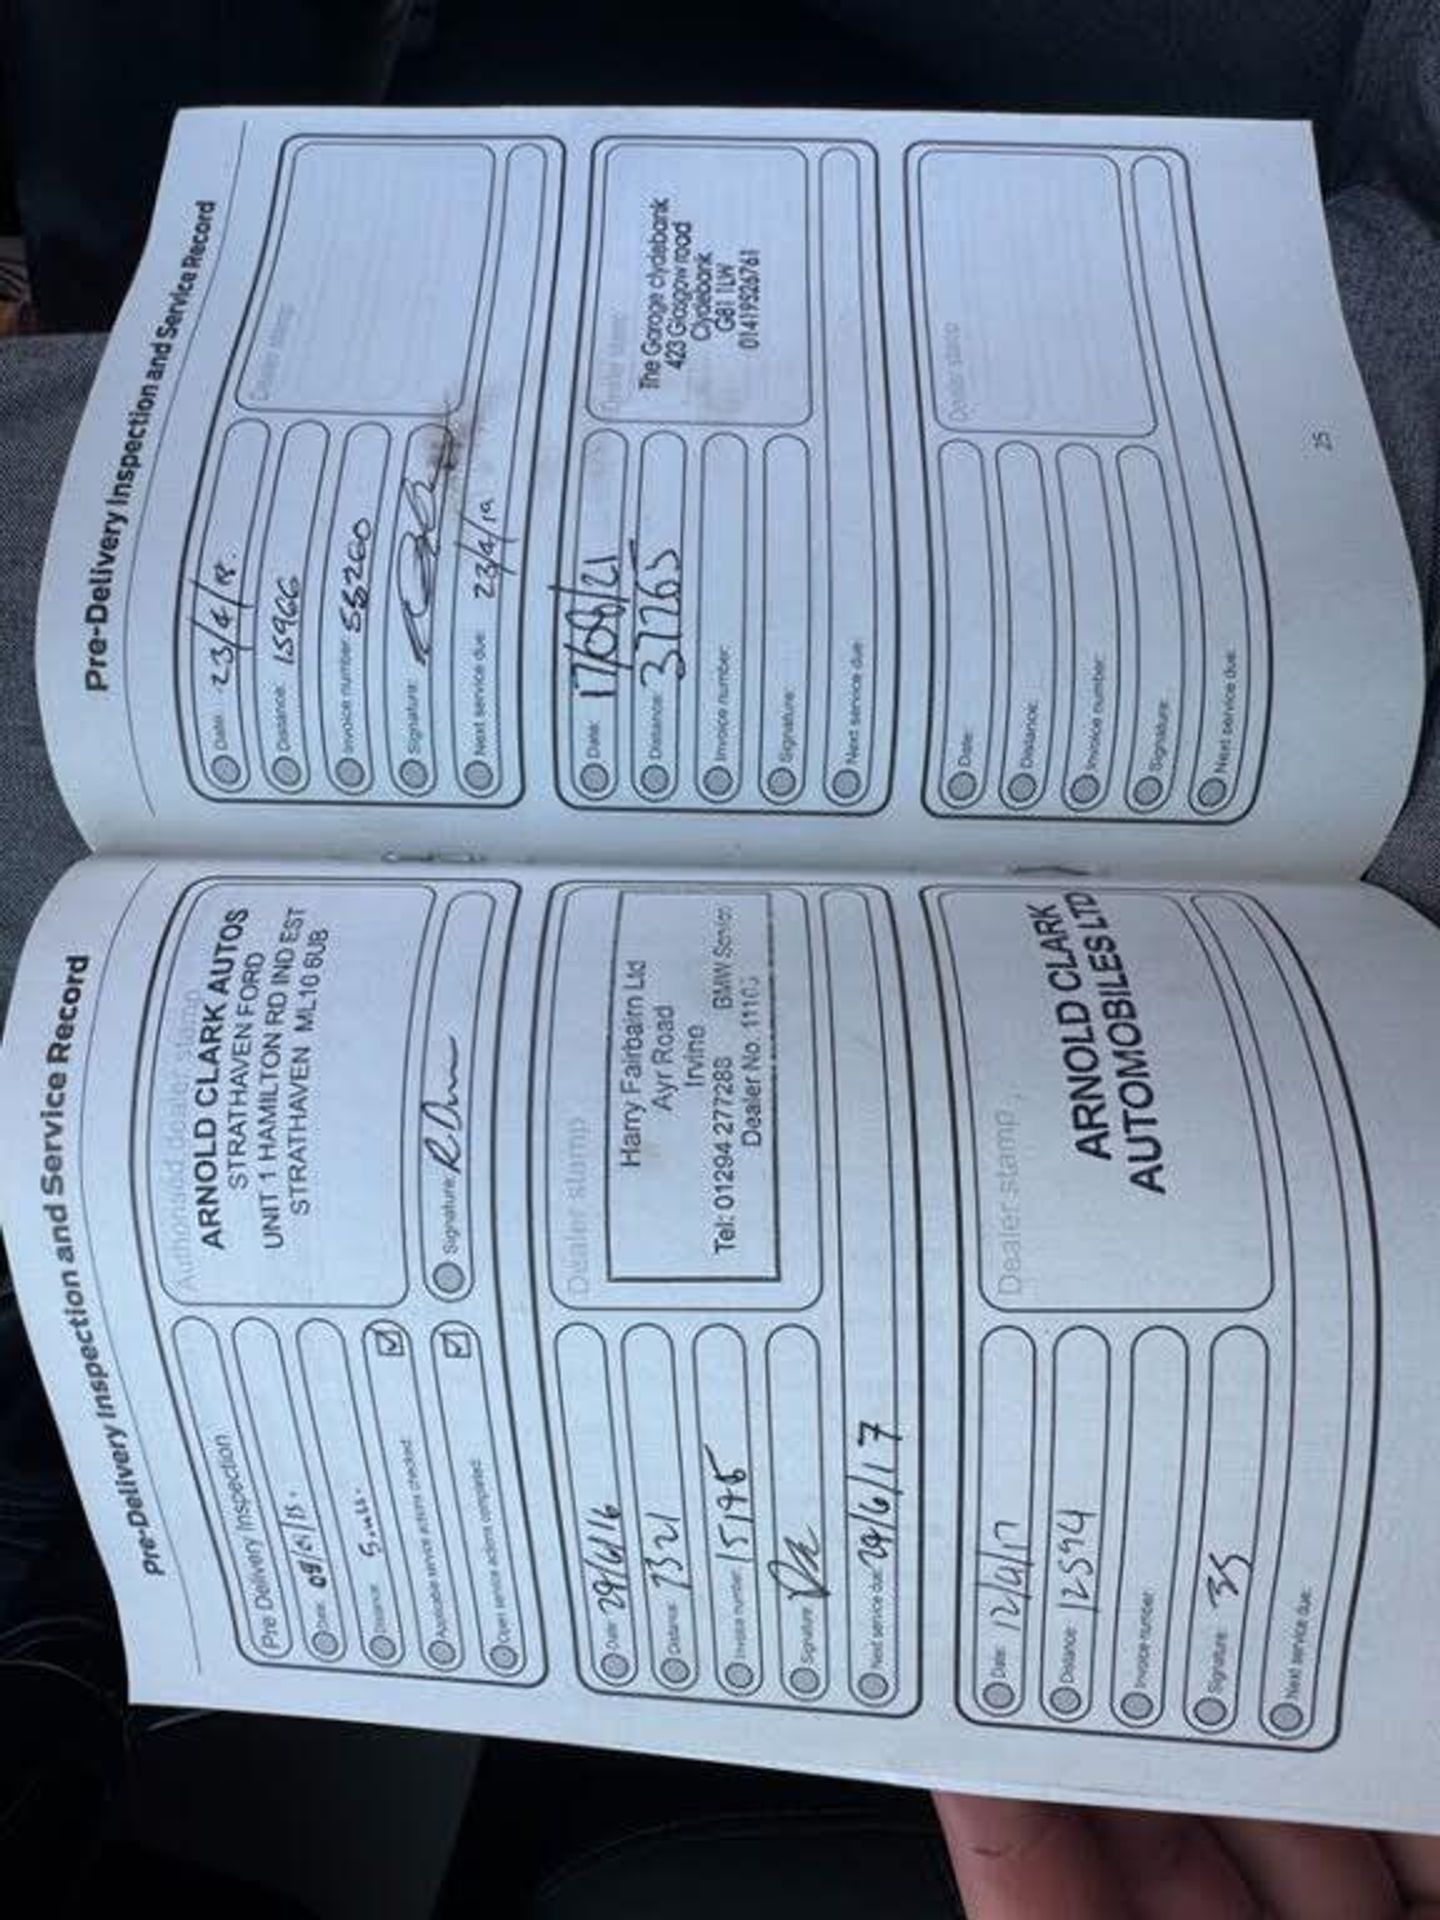 Pre-Delivery Inspection and Service Record
Pre Delivery Inspection
Date: 09/01/15.
Distance: 5 mls.
Applicable service actions checked
Open service actions completed
Authorised dealer stamp
ARNOLD CLARK AUTOS
STRATHAVEN FORD
UNIT 1 HAMILTON RD IND EST
STRATHAVEN ML10 6UB
Signature:
Date: 29/6/16
Distance: 7321
Invoice number: 15195
Signature:
Next service due: 29/6/17
Dealer stamp
Harry Fairbairn Ltd
Ayr Road
Irvine
Tel: 01294 277288 BMW Service
Dealer No. 11103
Date: 12/4/17
Distance: 12594
Invoice number:
Signature: 35
Next service due:
Dealer stamp
ARNOLD CLARK
AUTOMOBILES LTD
Pre-Delivery Inspection and Service Record
Date: 23/4/18.
Distance: 15966
Invoice number: 55260
Signature:
Next service due: 23/4/19
Dealer stamp
Date: 17/08/21
Distance: 37265
Invoice number:
Signature:
Next service due:
Dealer stamp
The Garage clydebank
423 Glasgow road
Clydebank
G81 1LW
01419526761
Date:
Distance:
Invoice number:
Signature:
Next service due:
Dealer stamp
25